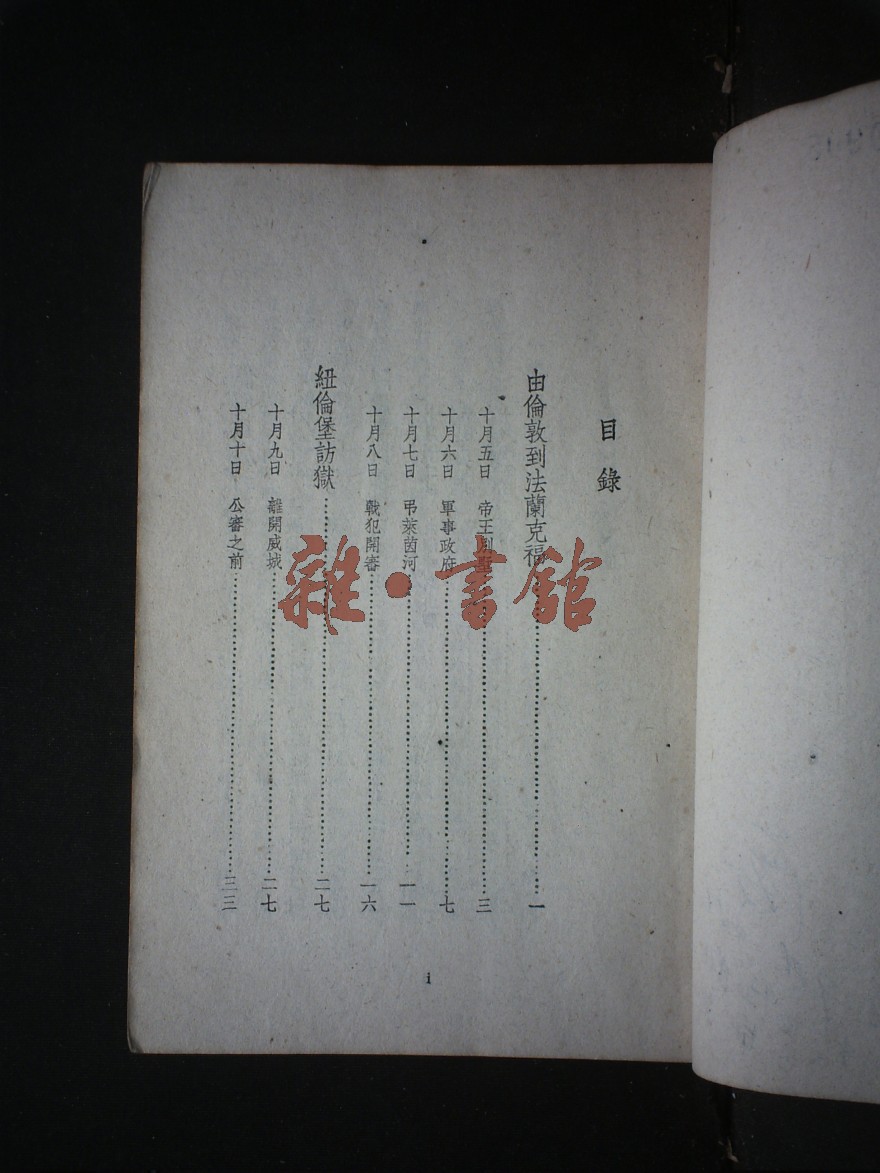 目錄
由倫敦到法蘭克福……一
十月五日 帝王別墅……三
十月六日 軍事政府……七
十月七日 弔萊茵河……一一
十月八日 戰犯開審……一六
紐倫堡訪獄……二七
十月九日 離開威城……二七
十月十日 公審之前……三三
i
雜·書館